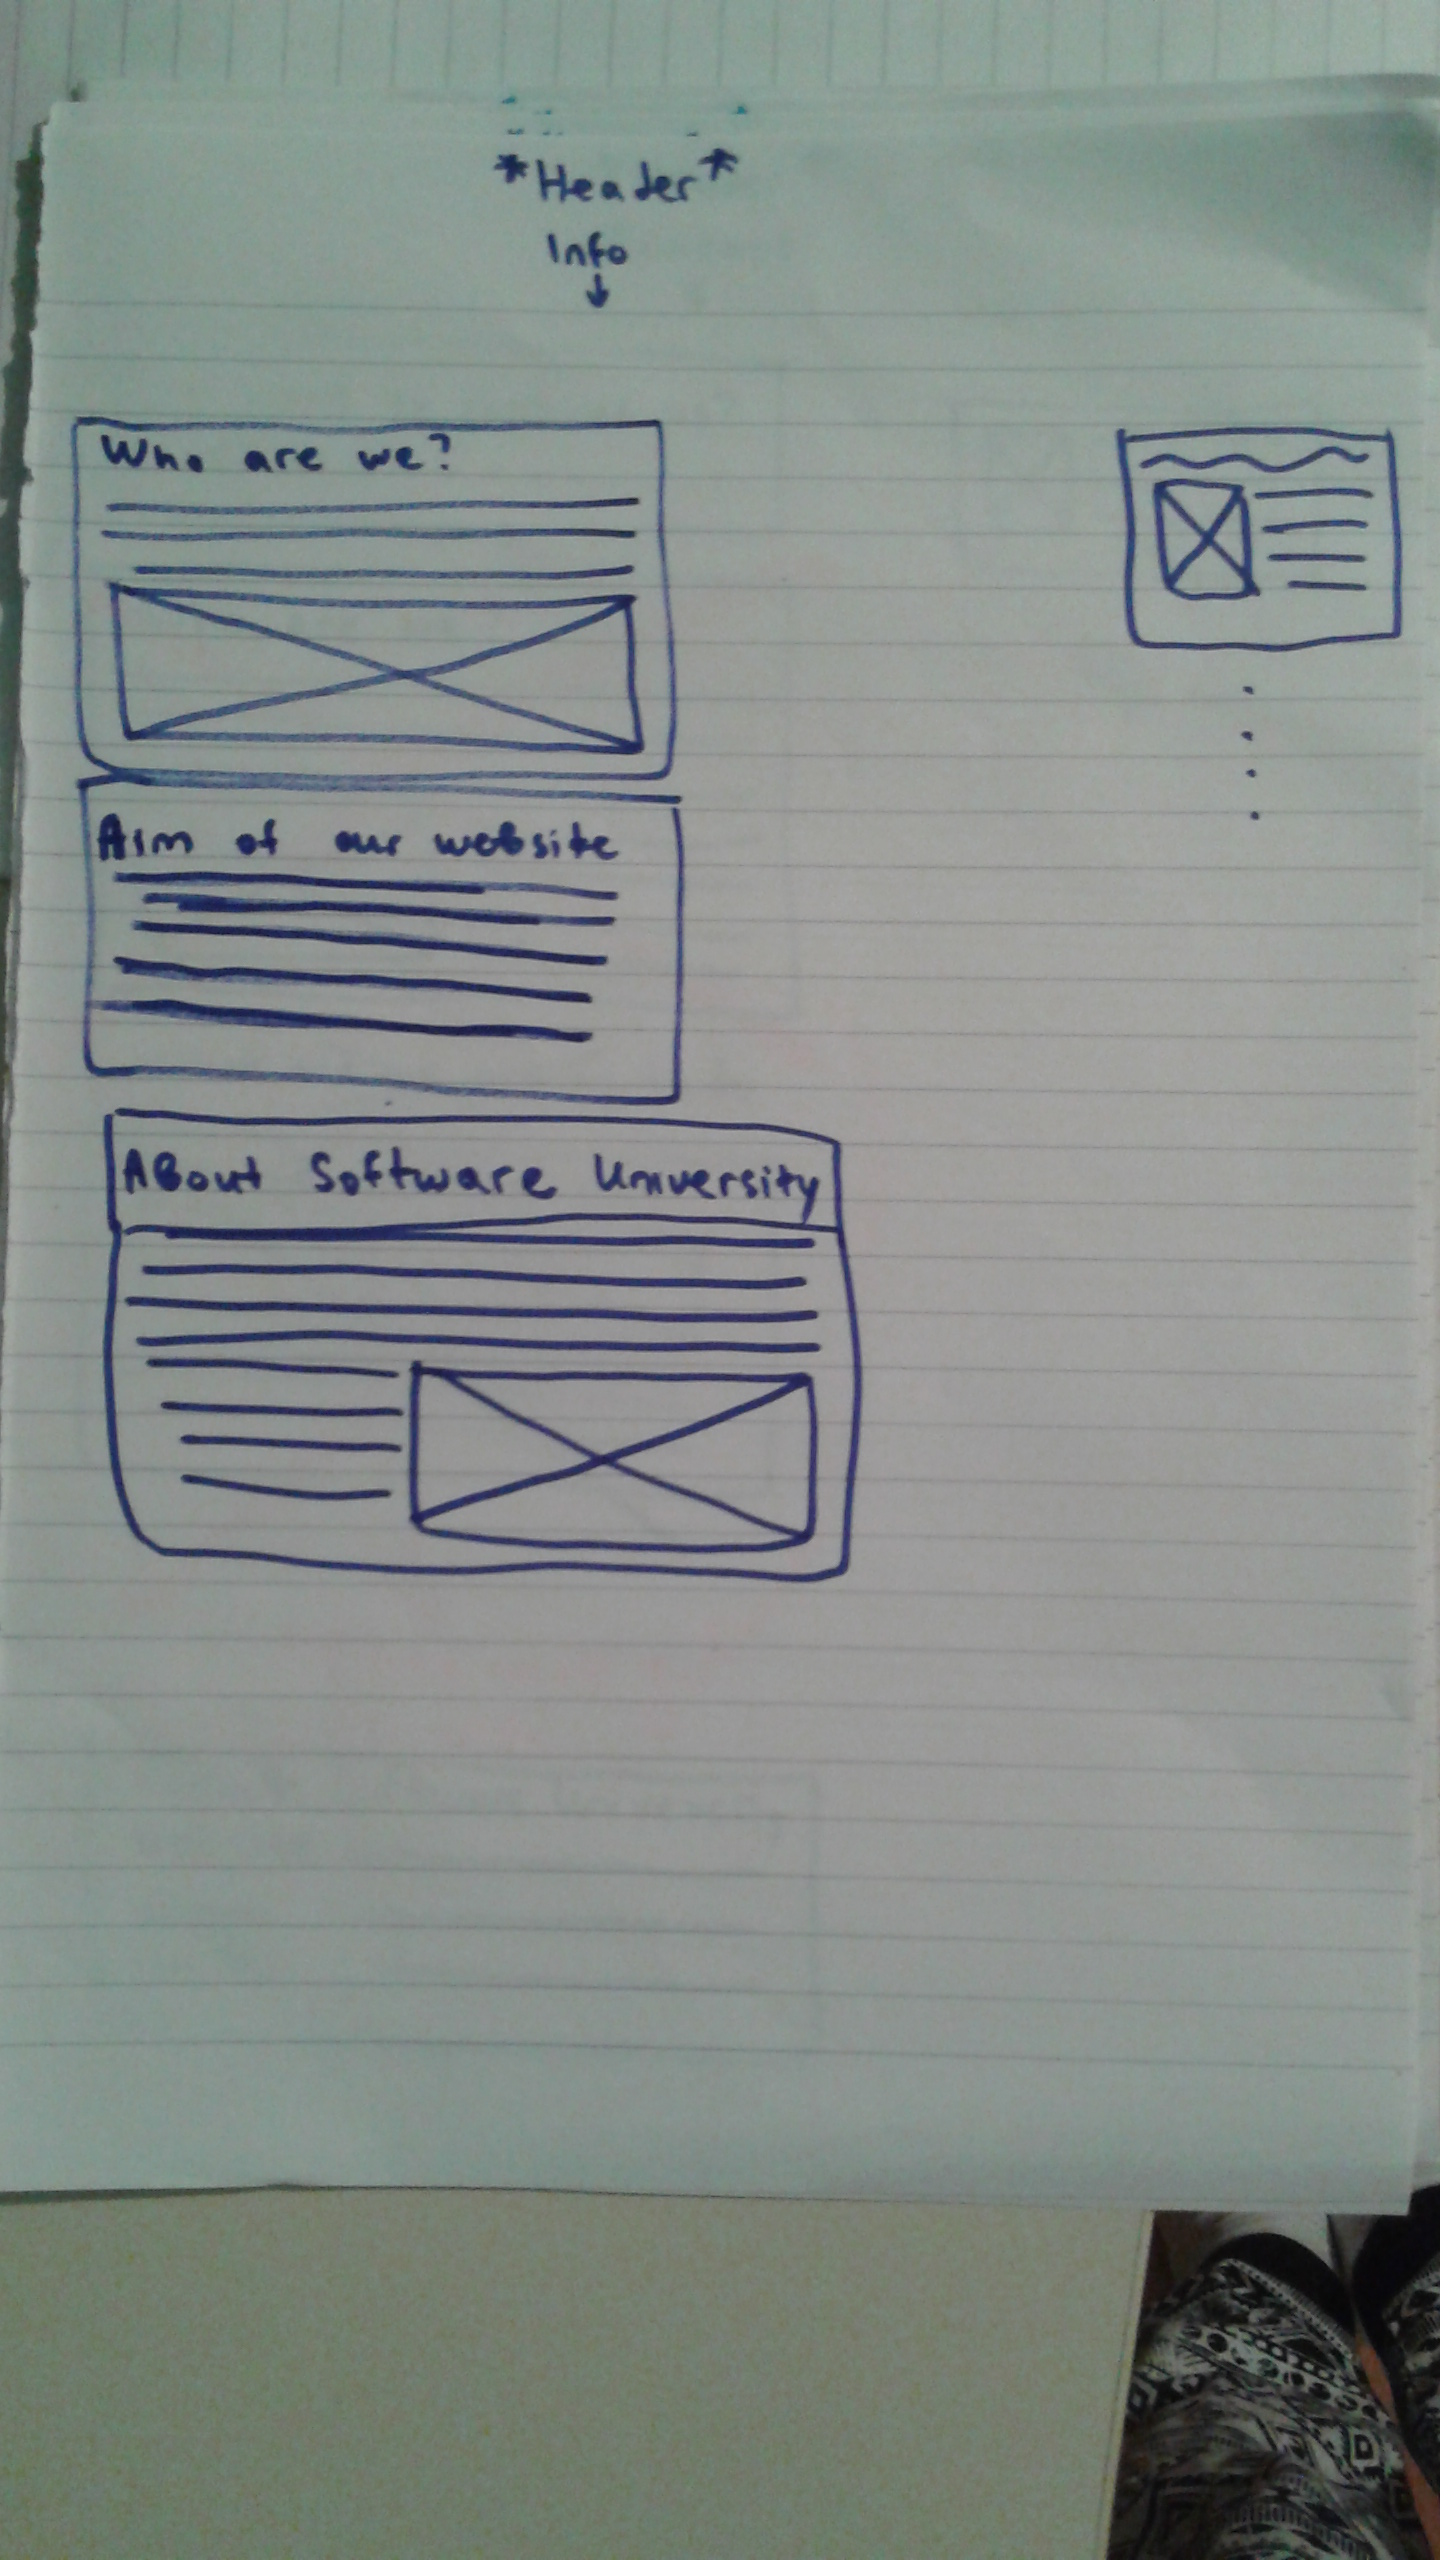 *Header*
Info
Who are we?
Aim of our website
About Software University